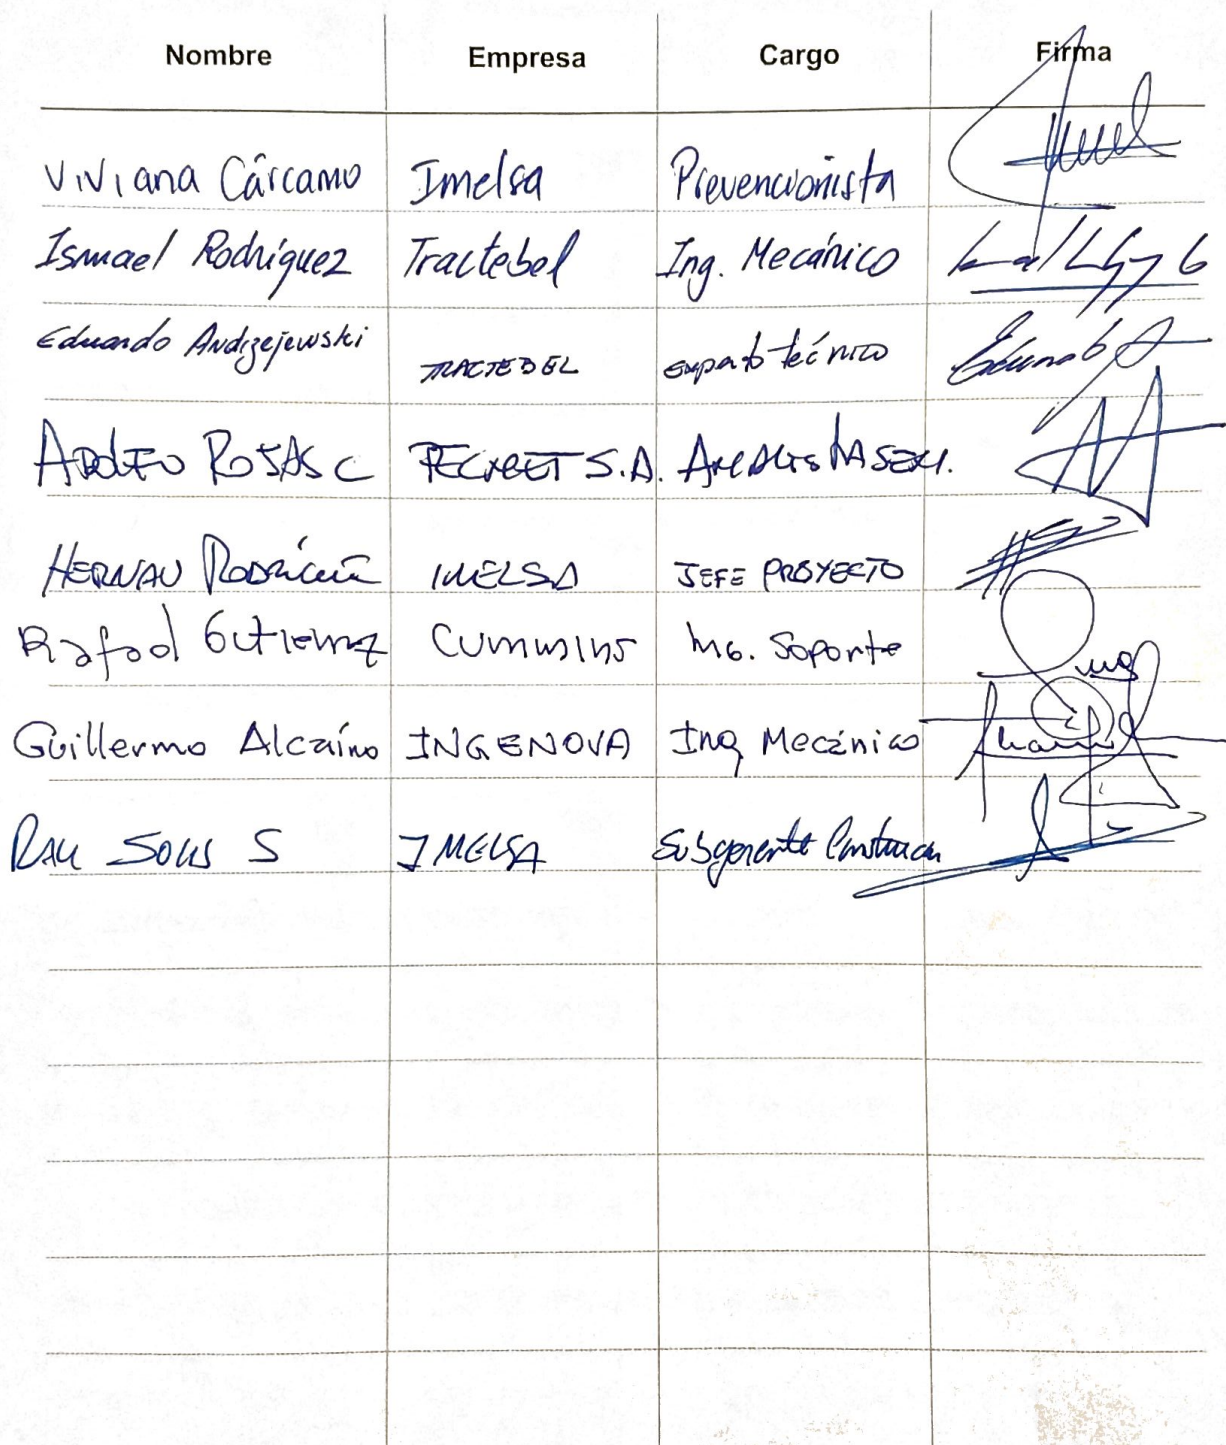 Nombre Empresa Cargo Firma
Viviana Cárcamo Imelsa Prevencionista
Ismael Rodríguez Tractebel Ing. Mecánico
Eduardo Andrzejewski TRACTEBEL experto técnico
ADOLFO ROJAS C S.A.
HERNAN IMELSA JEFE PROYECTO
Rafael Gutierrez Cummins Ing. Soporte
Guillermo Alcaíno INGENOVA Ing Mecánico
SOLIS S IMELSA Subgerente Construccion